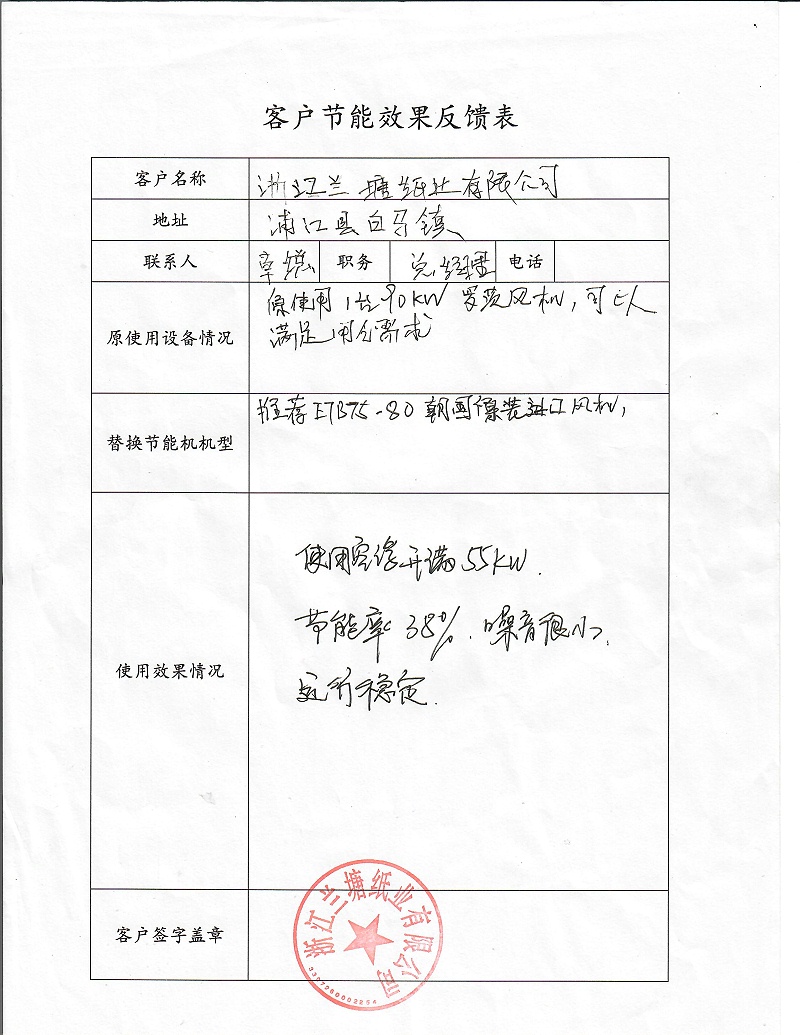 客户节能效果反馈表
客户名称 浙江兰塘纸业有限公司
地址 浦江县白马镇
联系人 职务 总经理 电话
原使用设备情况 原使用1台90KW罗茨风机,可以
满足用气需求
替换节能机机型 推荐 75-80 韩国原装进口风机,
使用效果情况
使用变缘开满55KW.
节能率38%.噪音很小,
运行稳定.
客户签字盖章
浙江兰塘纸业有限公司